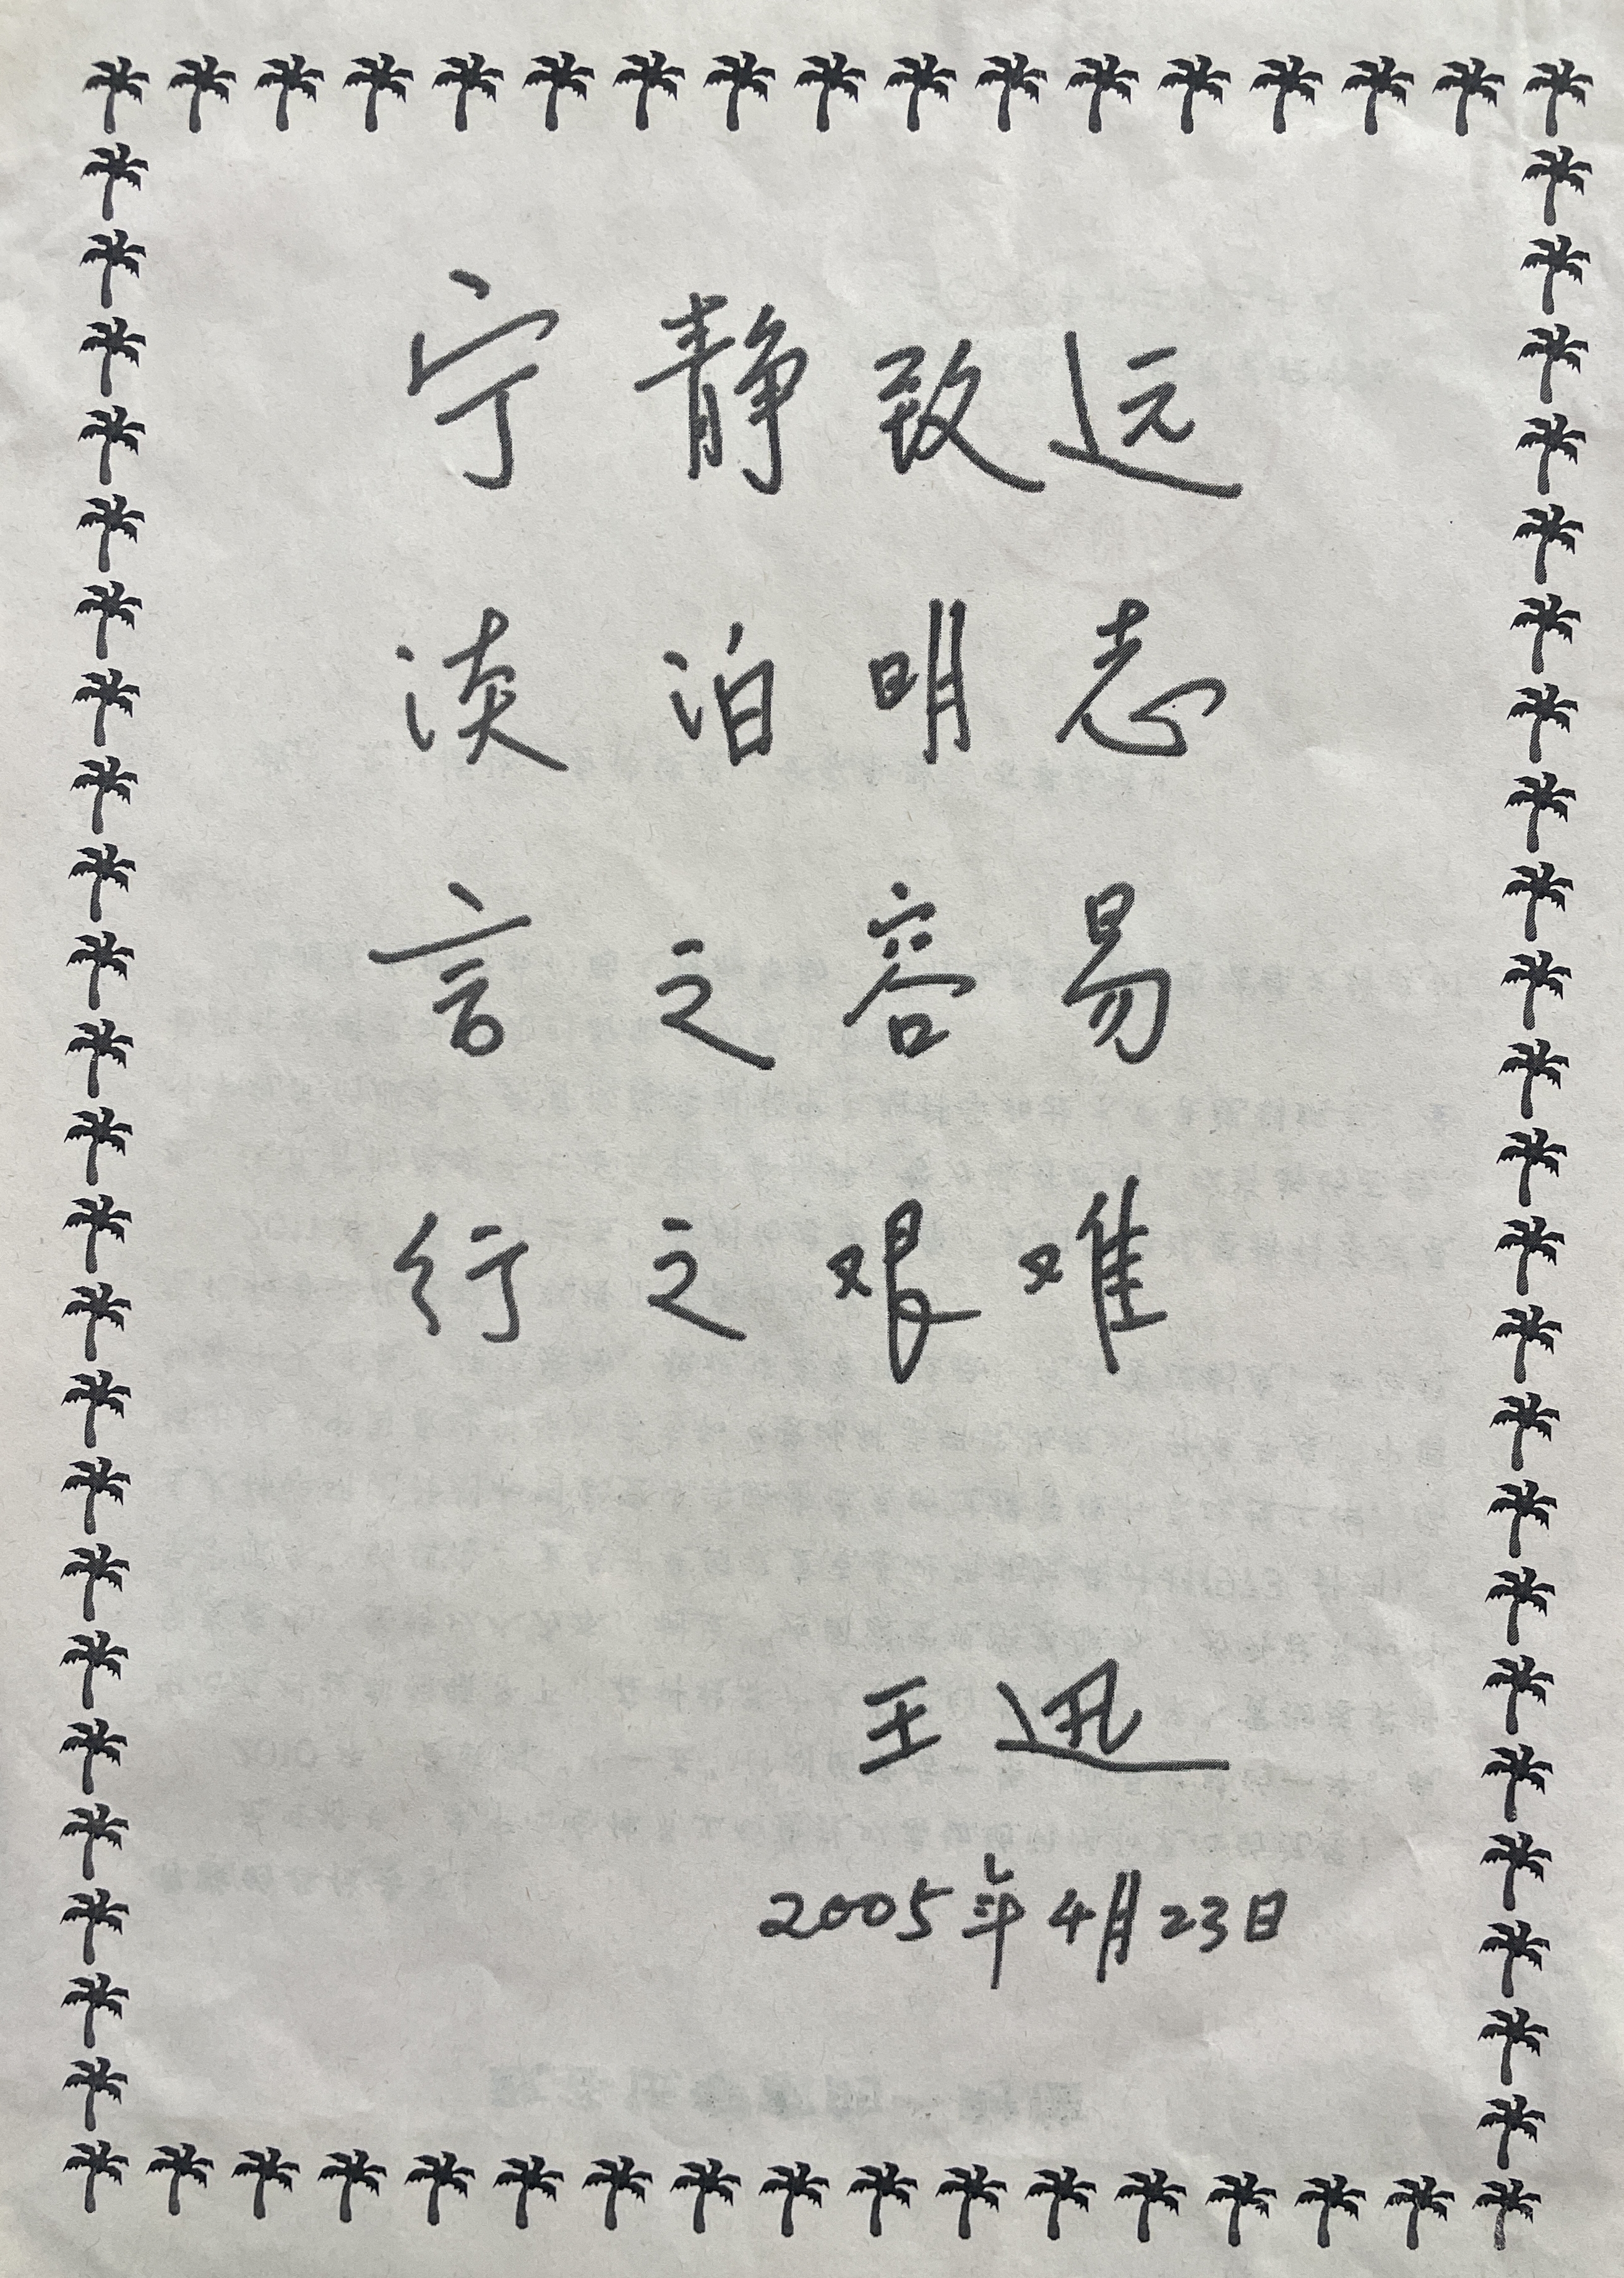 宁静致远
淡泊明志
言之容易
行之艰难
王迅
2005年4月23日